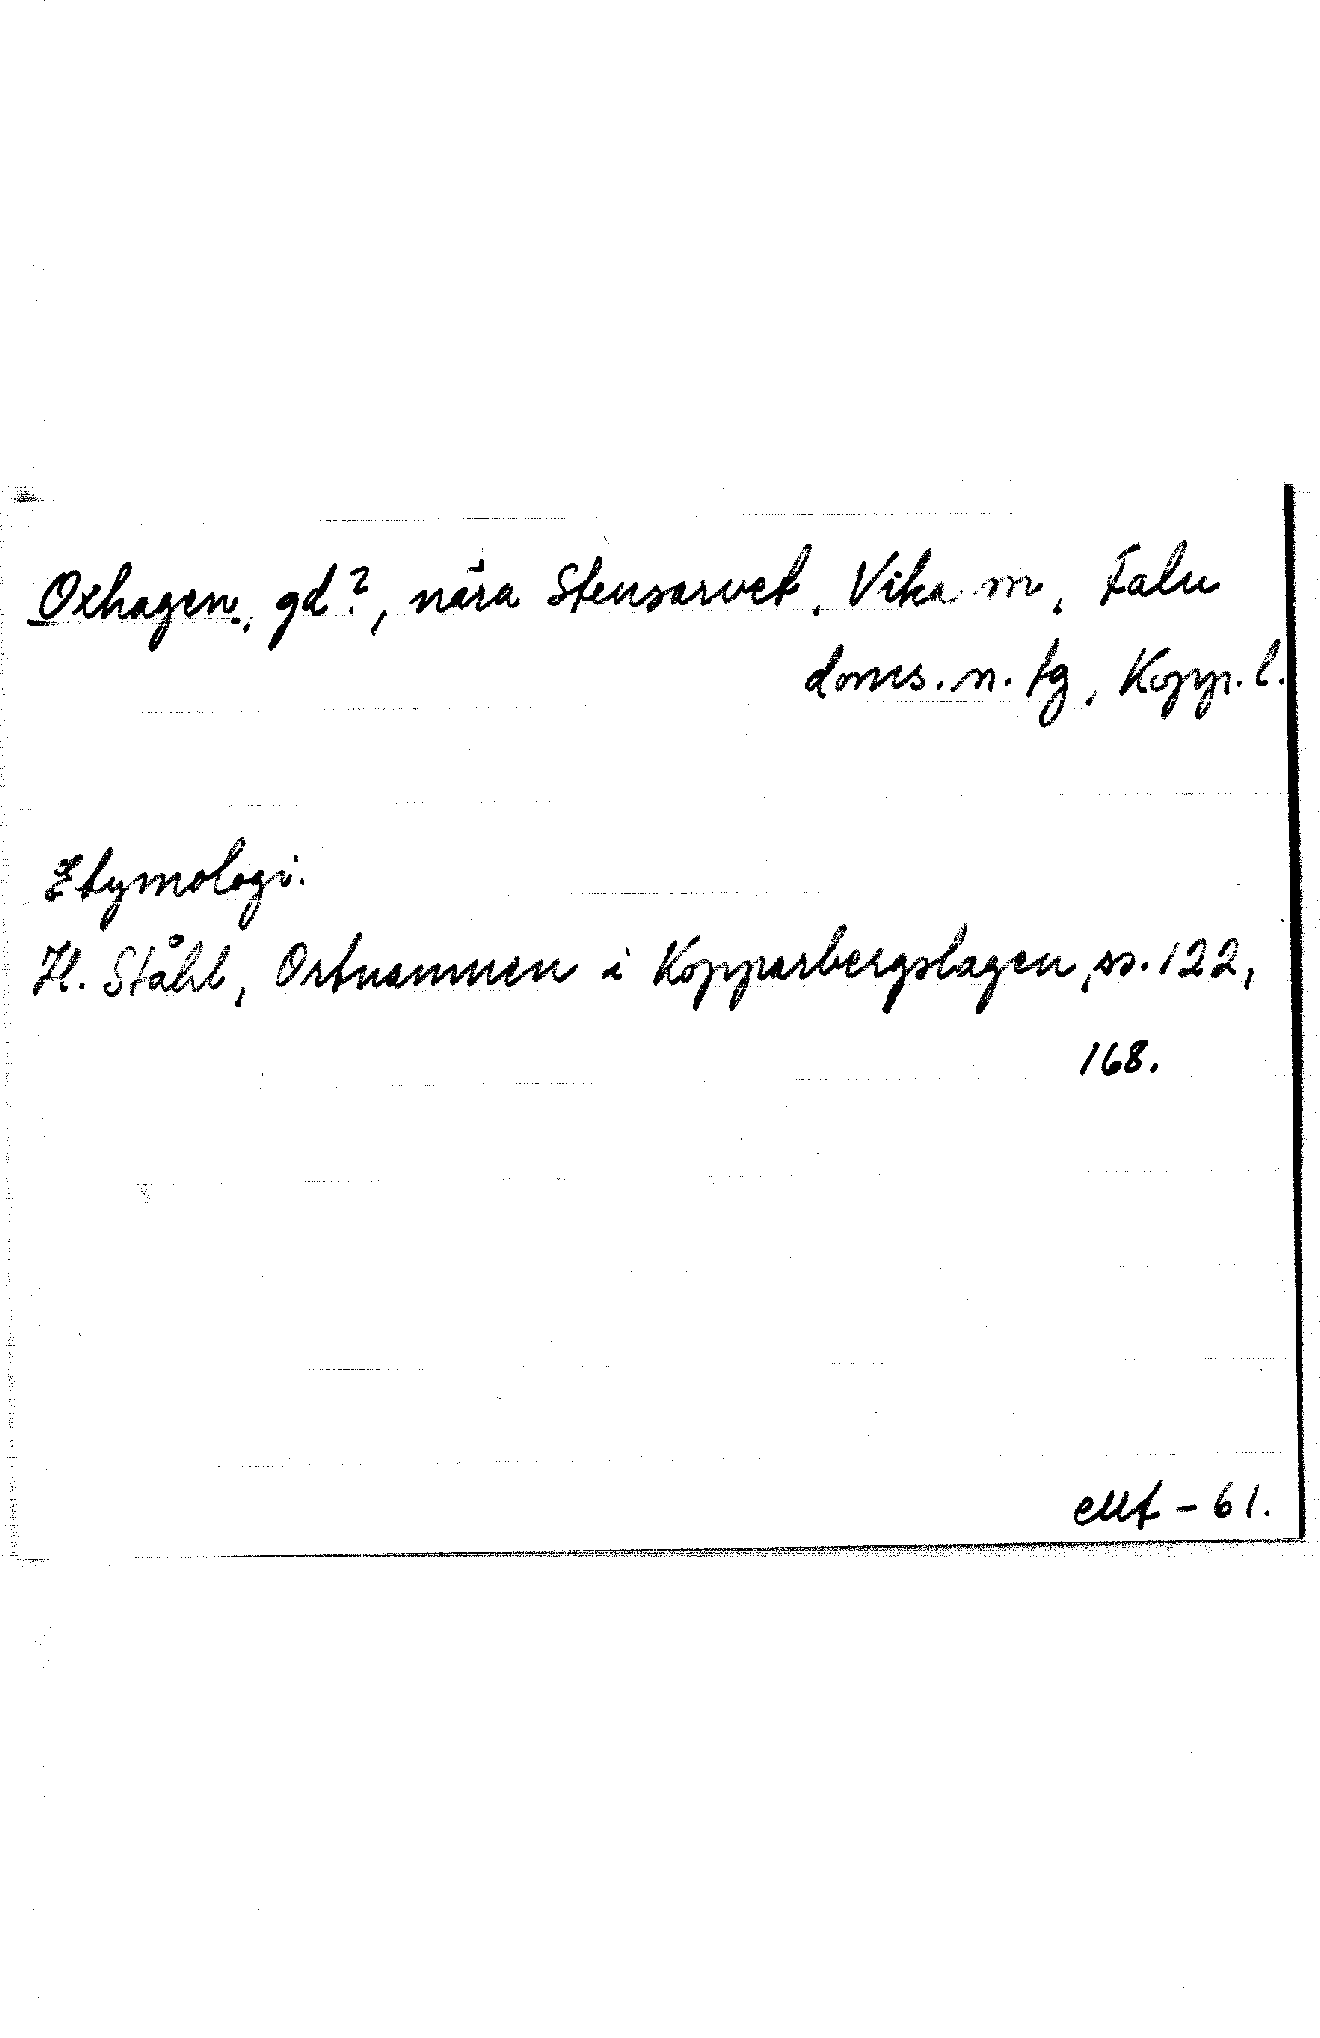 Oxhagen, gd?, nära Stensarvet, Vika sn, Falu
doms. n. tg, Kopp. l.
Etymologi.
H. Ståhl, Ortnamnen i Kopparbergslagen, ss. 122,
168.
- 61.